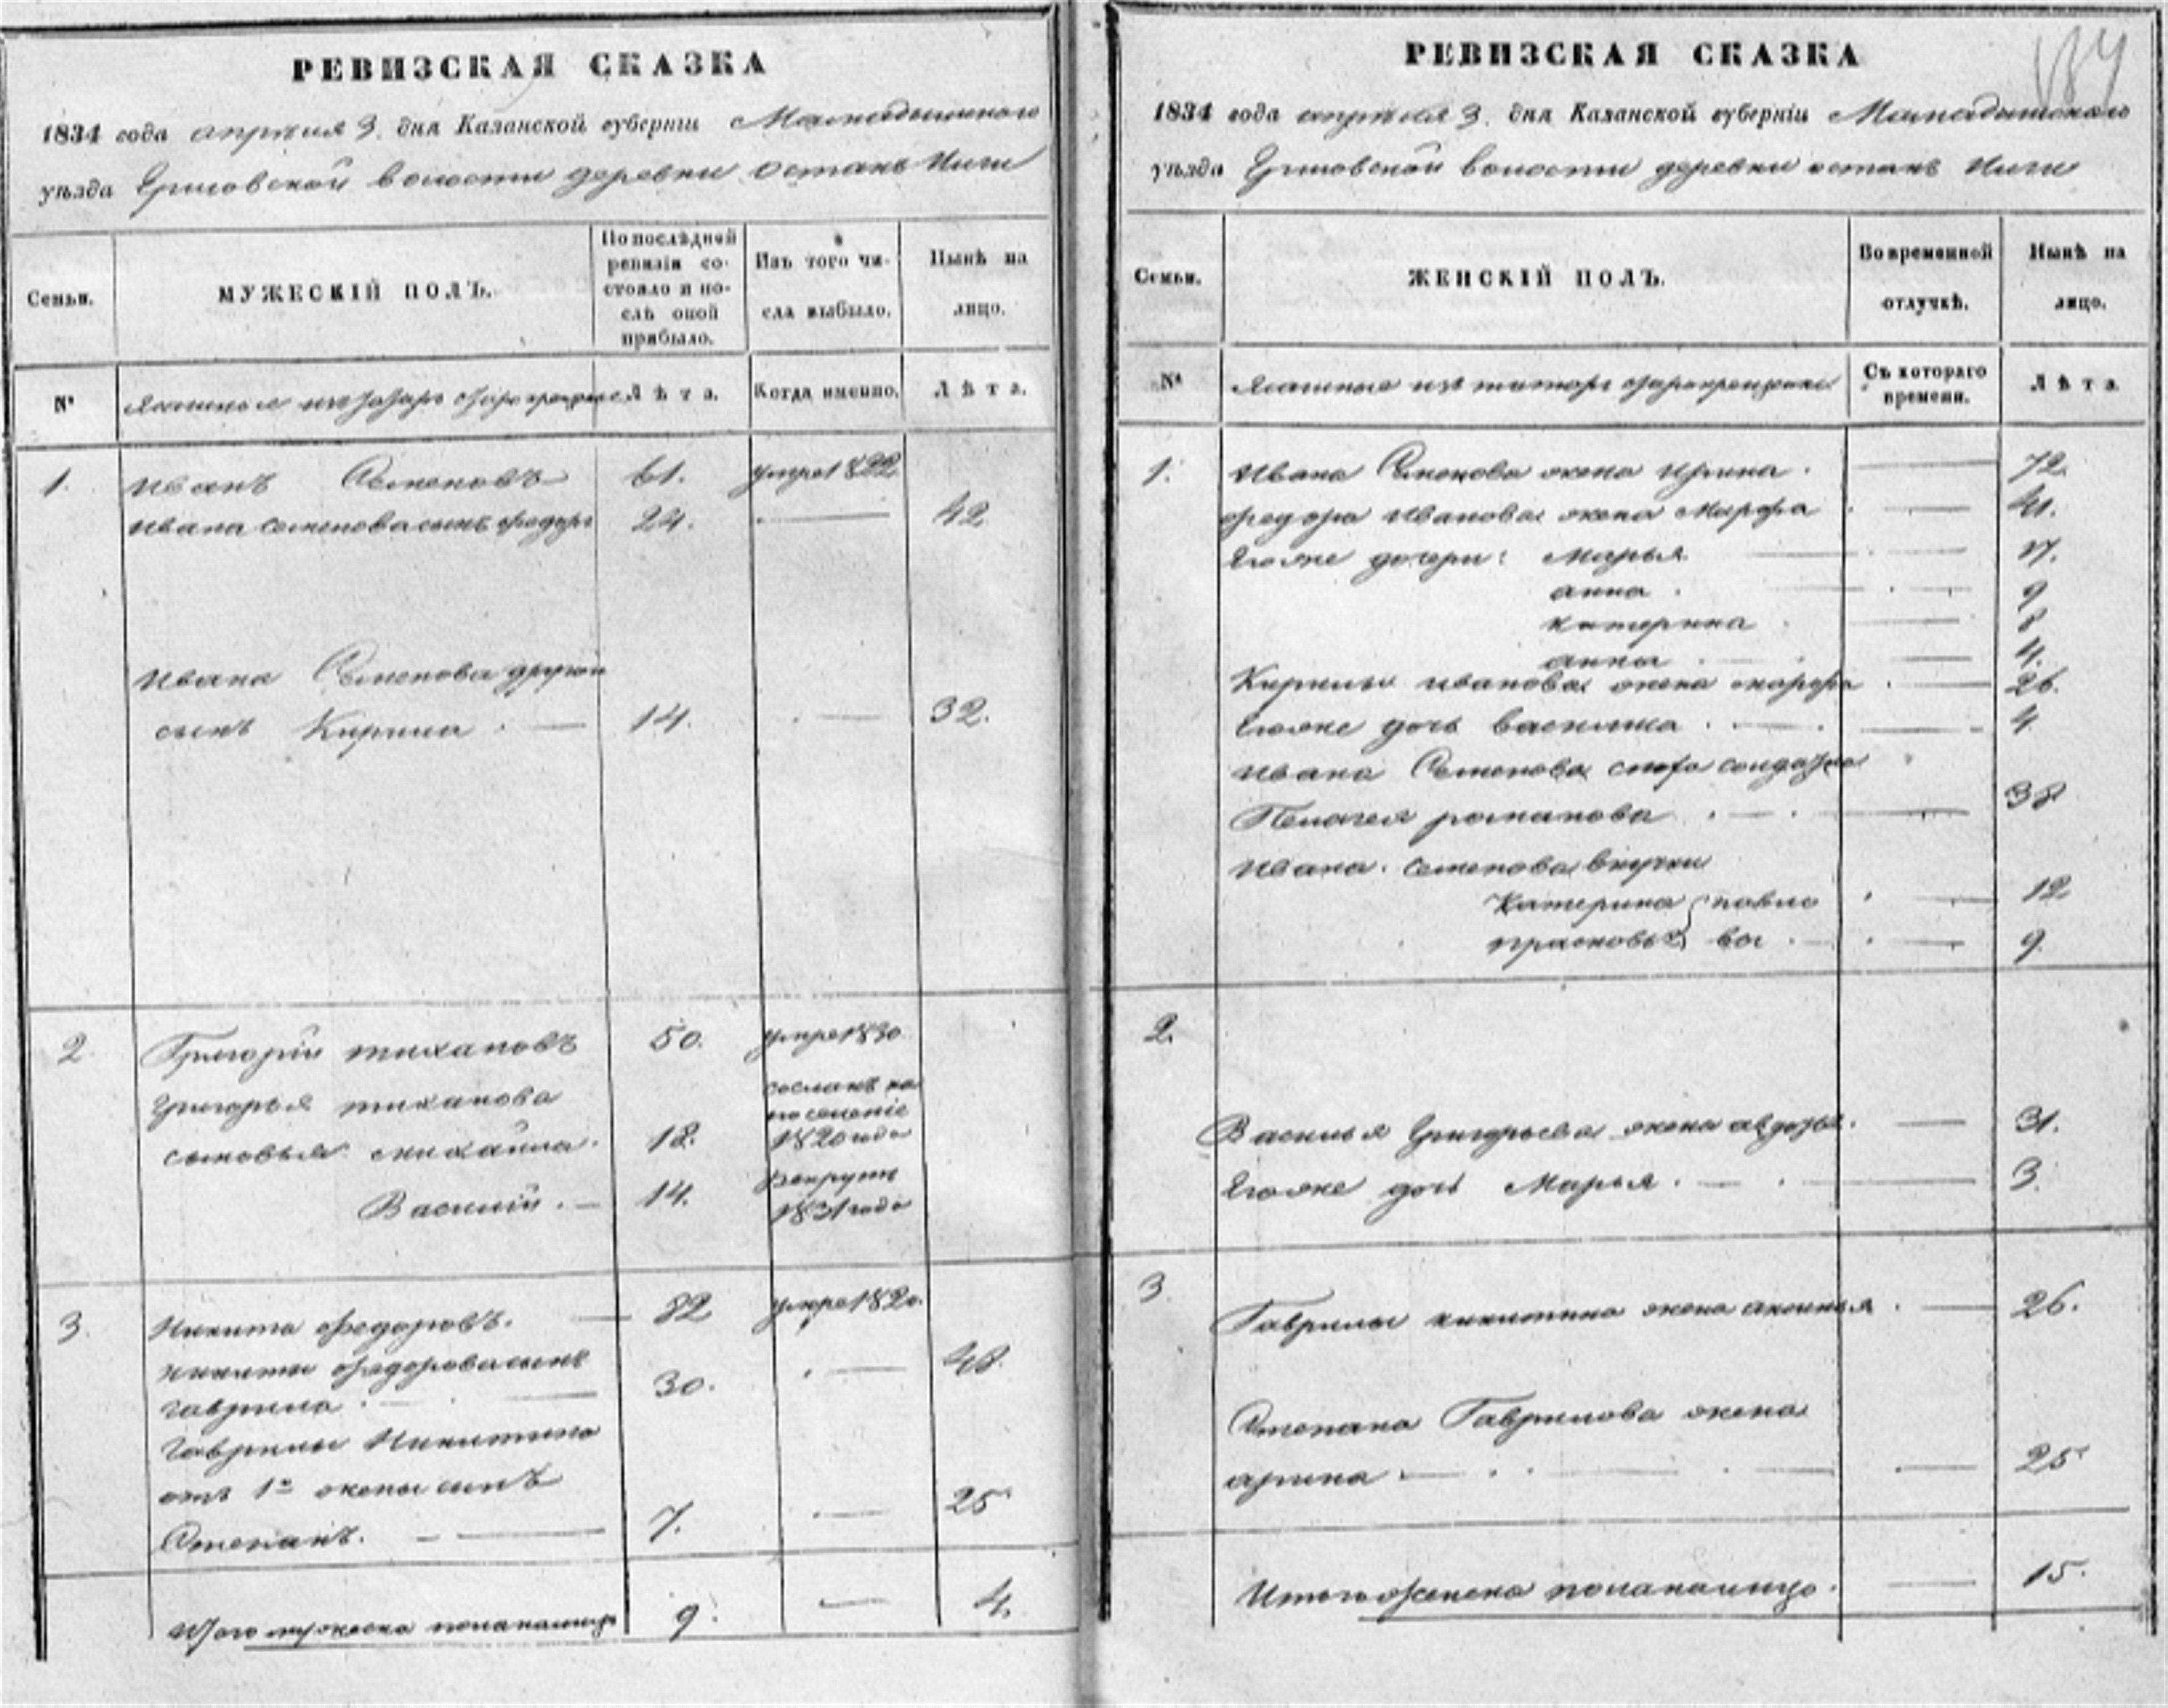 РЕВИЗСКАЯ СКАЗКА
1834 года апреля 3. дня Казанской губерніи Мамадышскаго
уѣзда волости деревни Останъ
Семьи.
МУЖЕСКІЙ ПОЛЪ.
По послѣдней
ревизіи со-
стояло и по-
слѣ оной
прибыло.
Изъ того чи-
сла выбыло.
Нынѣ на
лицо.
№
Ясашные изъ татаръ старокрещеные
Лѣта.
Когда именно.
Лѣта.
1. Иванъ Семеновъ 61. умре 1822
Ивана Семенова сынъ Федоръ 24. 42
Ивана Семенова другой
сынъ Кирила 14. 32.
2 Григорій Тихановъ 50. умре 1830
Григорья Тиханова
сыновья Михайла 18.
сосланъ на
поселеніе
1820 года
Василій 14.
Рекрутъ
1831 года
3. Никита Федоровъ. 82 умре 1820.
Никиты Федорова сынъ
Гаврила 30. 48
Гаврилы Никитина
отъ 1й жены сынъ
Степанъ. 7. 25
Итого мужеска пола налицо 9. 4.
РЕВИЗСКАЯ СКАЗКА
1834 года апреля 3. дня Казанской губерніи Мамадышскаго
уѣзда волости деревни останъ
Семьи.
ЖЕНСКІЙ ПОЛЪ.
Во временной
отлучкѣ.
Нынѣ на
лицо.
№
Ясашные изъ татаръ старокрещеные
Съ котораго
времени.
Лѣта.
1. Ивана Семенова жена Ирина 72.
Федора Иванова жена Марфа 41.
Егоже дочери: Марья 17.
анна 9
катерина 8
анна 4.
Кирилы Иванова жена марфа 26.
Егоже дочь василиса 4
Ивана Семенова солдатка
Пелагея романова 38
Ивана Семенова внучки
Катерина } павло 12
прасковья } ва 9.
2.
Василья Григорьева жена авдотья 31.
Егоже дочь Марья 3.
3. Гаврилы никитина жена аксинья 26.
Степана Гаврилова жена
арина 25
Итого женска пола налицо. 15.